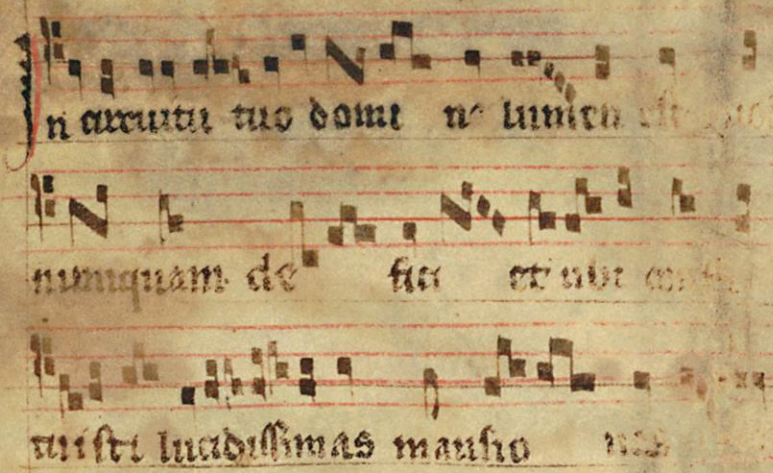 In circuitu tuo domi ne lumen est
numquam de fici et ubi con
tuisti lucidissimas mansio nes